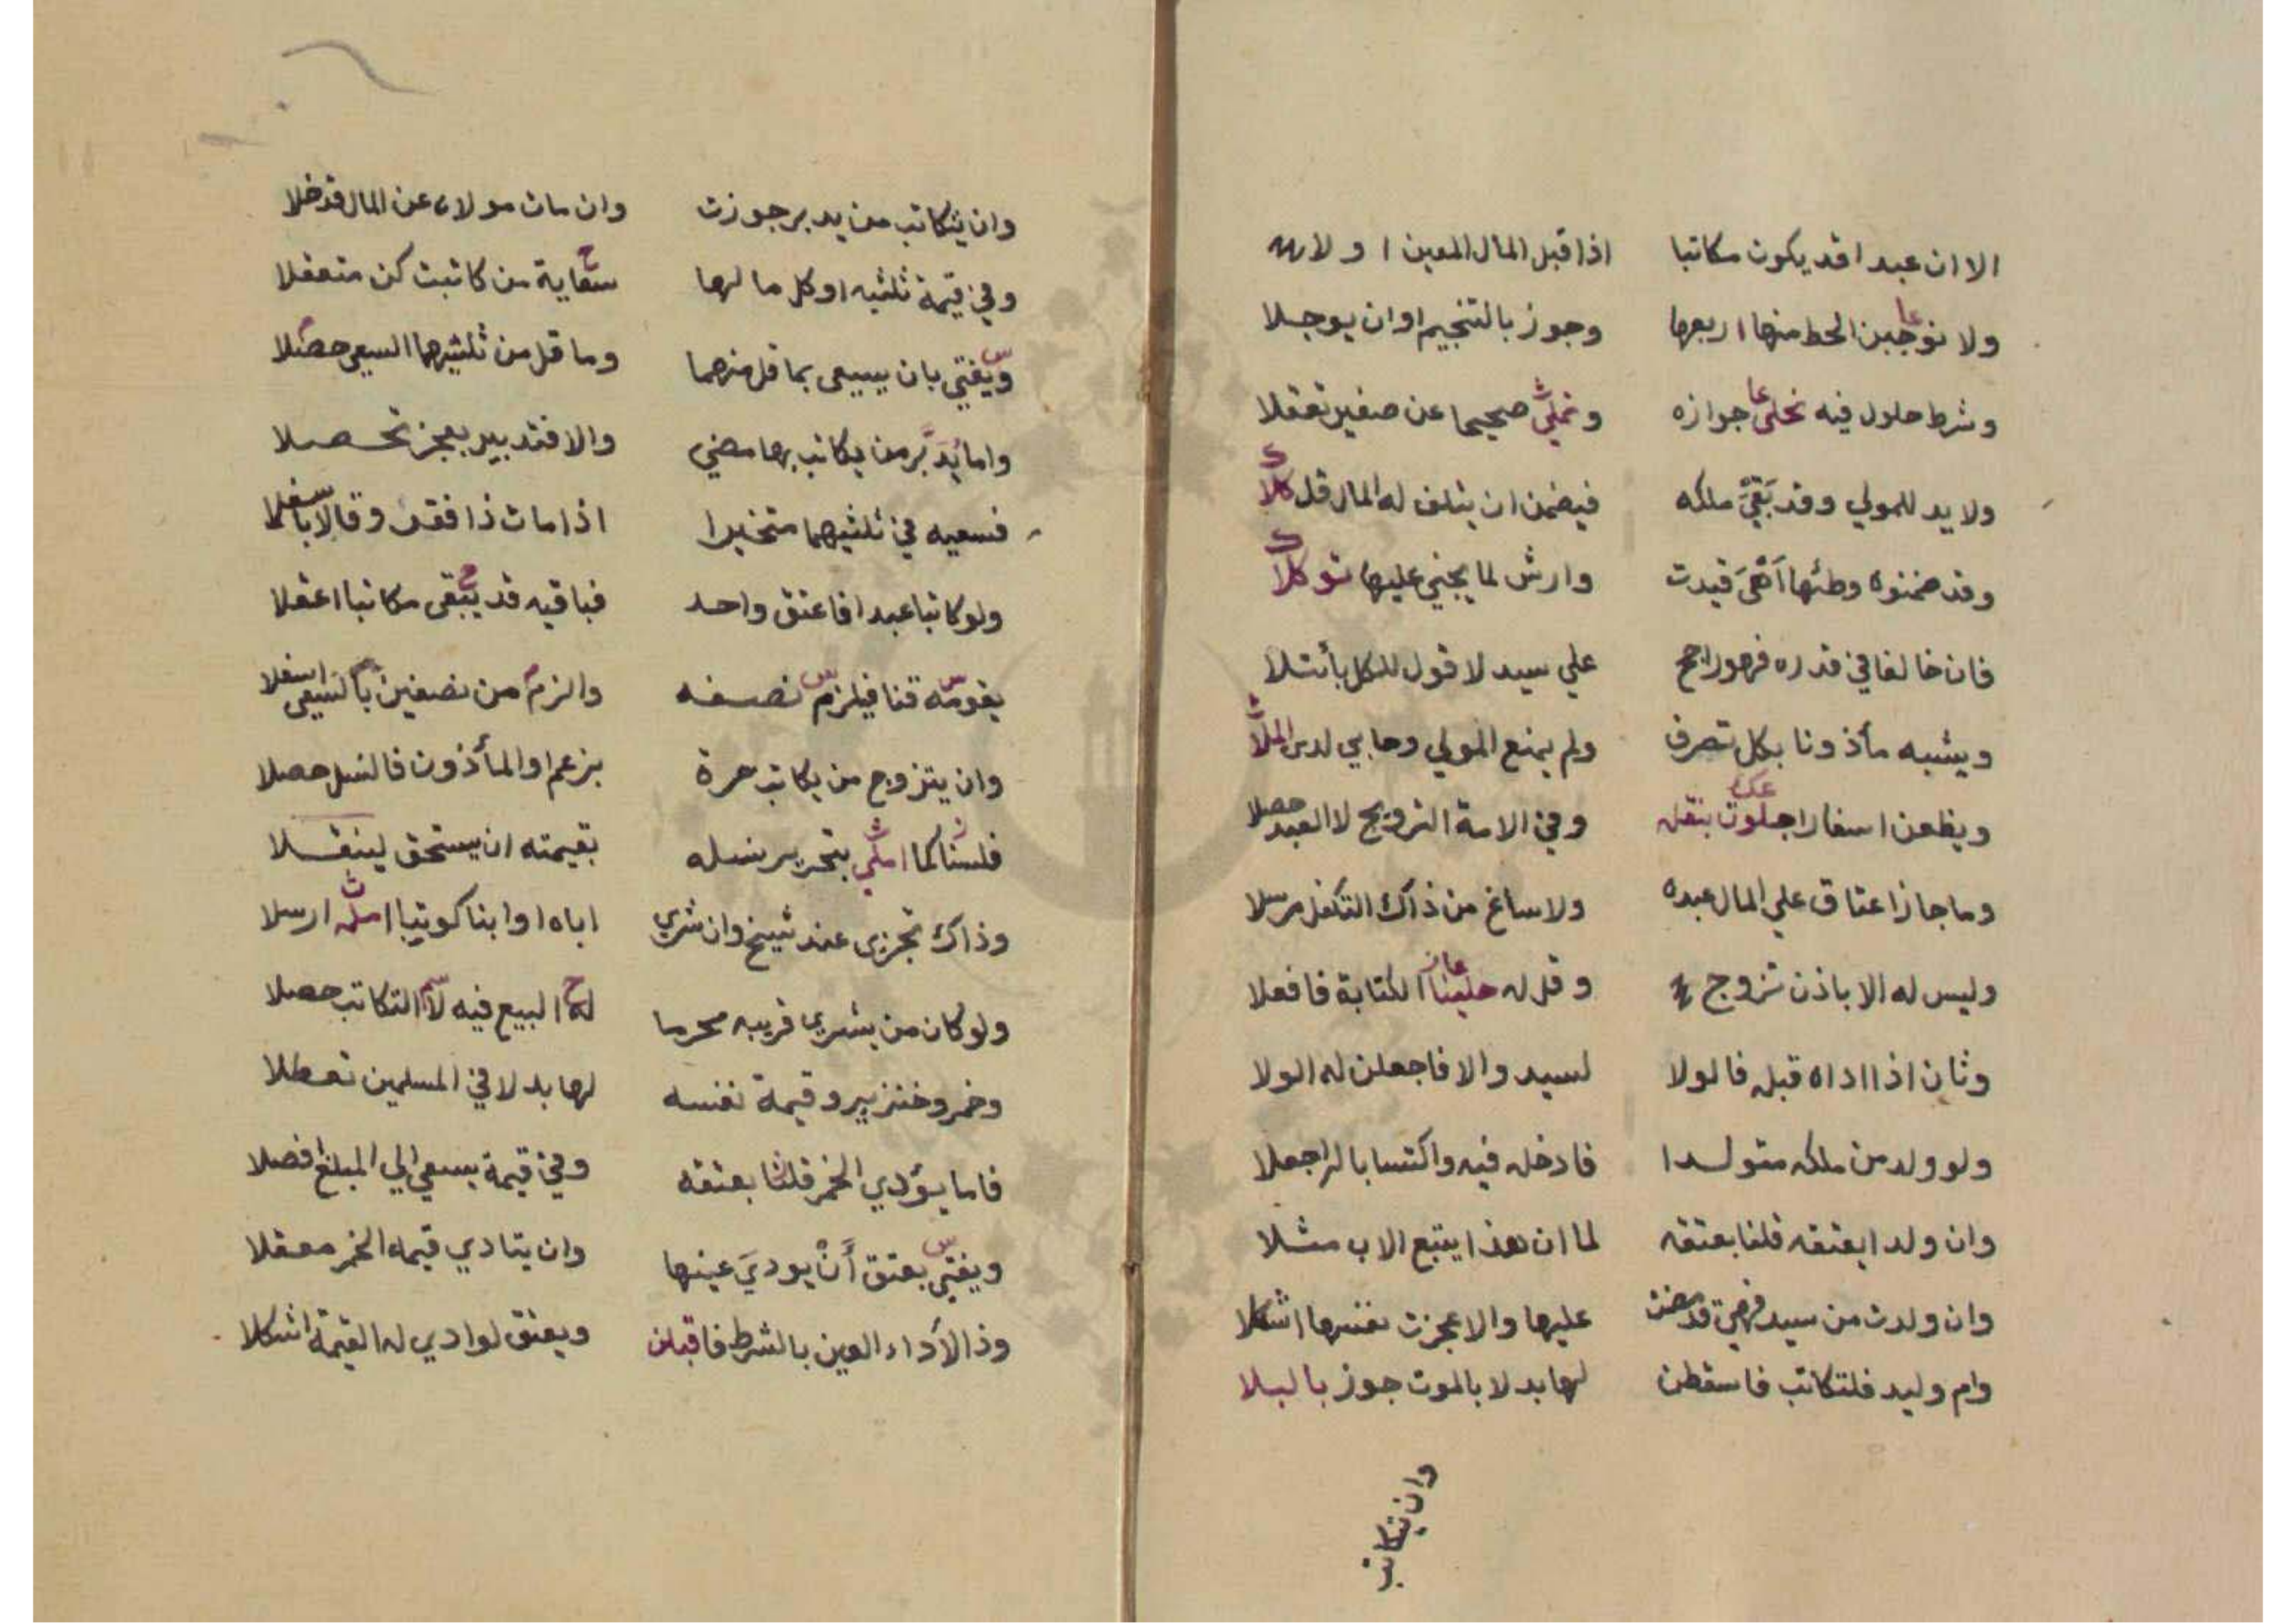 الا ان عبدا قد يكون مكاتبا اذا قبل المال المعين اولا
ولا نوجبن الحط منها اربعها وجوز بالتنجيم او ان يوجلا
وشرط حلول فيه نحلى جوازه ونملى صحيحا عن صغير تعقلا
ولا يد للمولي وقد بقي ملكه فيضمن ان يتلف له المال قل كلا
وقد ضمنوه وطئها اي قيدت وارش لما يجني عليها توكلا
فان خالفا في قدره فهو راجح علي سيد لا قول للكل بأتلا
ويشبه مأذونا بكل تصرف ولم يمنع المولي وحابي لدى الملا
ويظعن اسفارا جلوت بنقله وفي الامة التزويج لا العبد حصلا
وما جاز اعتاق علي المال عبده ولا ساغ من ذاك التكفل مرسلا
وليس له الا باذن تزوج وقل له حلينا الكتابة فافعلا
وثان اذا اداه قبل فالولا لسيد والا فاجعلن له الولا
ولو ولد من ملكه متولدا فادخله فيه واكتسابا له اجعلا
وان ولدا يعتقه قلنا بعتقه لما ان هذا يتبع الاب مثلا
وان ولدت من سيد فهي قد مضت عليها والا عجزت نفسها اشكلا
وام وليد فلتكاتب فاسقطن لها بدلا بالموت جوز بالبلا
وان يتكاتب
وان يتكاتب من يدبر جوزت وان مات مولاه عن المال قد خلا
وفي قيمة ثلثيه او كل ما لها سعاية من كاتبت كن متعقلا
ويفتي بان يسعى بما قل منهما وما قل من ثلثيهما السعي حصلا
واما يدبر من يكاتب بها مضي والا فتدبير بعجز تحصلا
فسعيه في ثلثيهما متخيرا اذا مات ذا فقر وقالا باسفلا
ولو كاتبا عبدا فاعتق واحد فباقيه قد يبقى مكاتبا اعقلا
يقومه قنا فيلزم نصفه والزم من نصفين بالسعي اسفلا
وان يتزوج من يكاتب حرة بزعم او المأذون فالنسل حصلا
فلسنا كما املي بتحرير نسله بقيمته ان يستحق لينقلا
وذاك تجزى عند شيخ وان شري اباه او ابنا كوتبا املة ارسلا
ولو كان من يشري قريبه محرما له البيع فيه لا التكاتب حصلا
وخمر وخنزير وقيمة نفسه لها بدلا في المسلمين تعطلا
فاما يؤدي الخمر قلنا بعتقه وفي قيمة يسعي الي المبلغ افضلا
ويفتي بعتق أن يودي عينها وان يتادي قيمة الخمر معقلا
وذا لأداء العين بالشرط فاقبلن ويعتق لو ادي له القيمة اشكلا